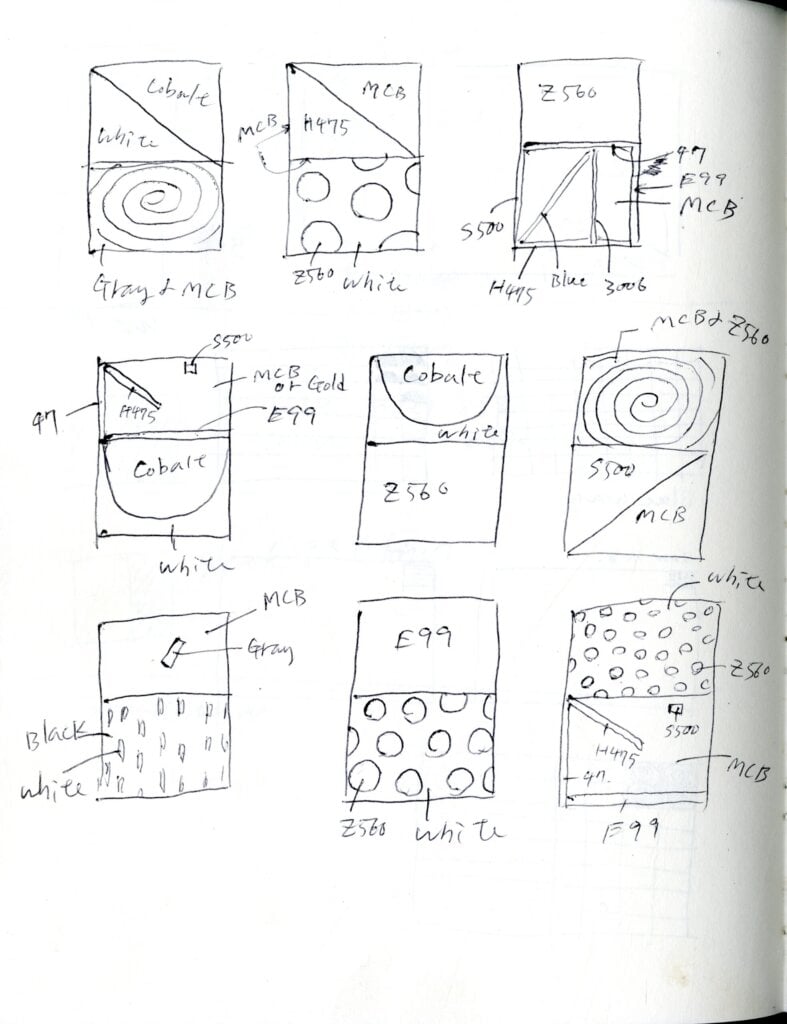 Cobalt
White
Gray & MCB
MCB
MCB
H475
Z560
White
Z560
97
E99
MCB
S500
H475
Blue
3006
S500
MCB
or Gold
97
H475
E99
Cobalt
White
Cobalt
White
Z560
MCB & Z560
S500
MCB
MCB
Gray
Black
White
E99
Z560
White
White
Z560
S500
H475
97.
MCB
E99